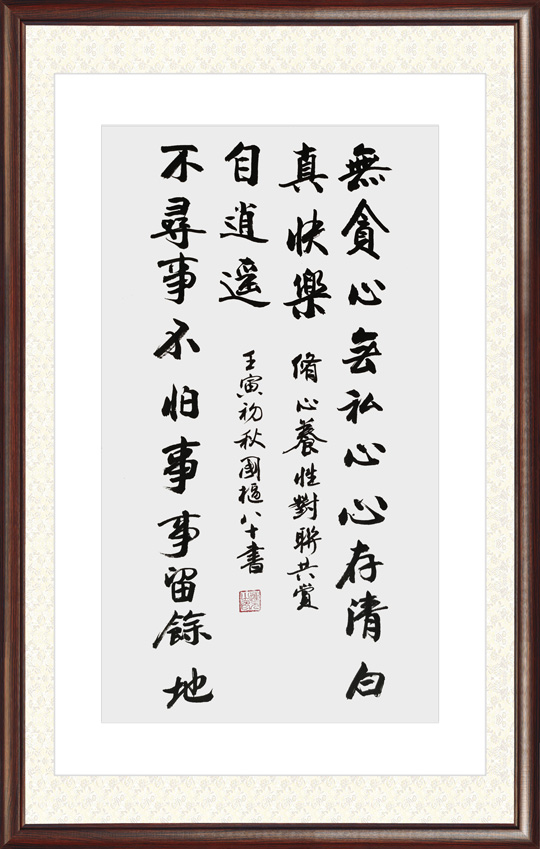 無貪心無私心心存清白
真快樂
脩心養性對聯共賞
不尋事不怕事事留餘地
自逍遥
壬寅初秋國樞八十書